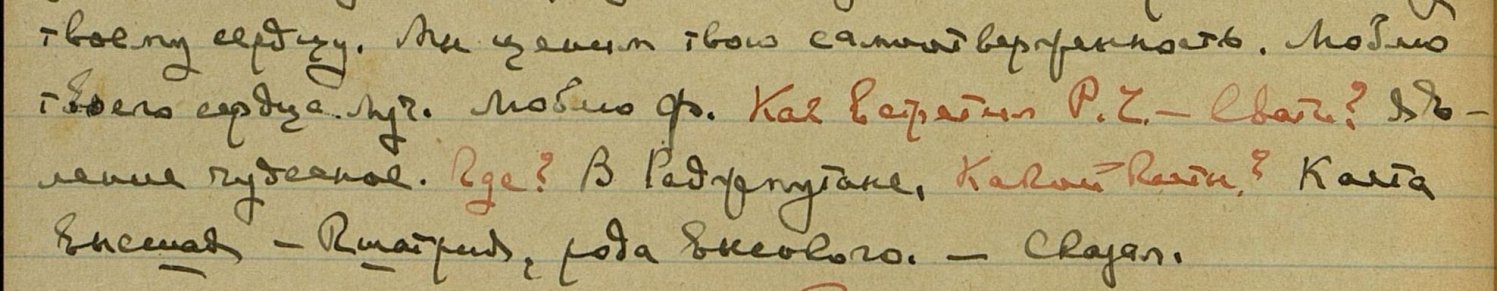 твоему сердцу. Мы ценим твою самоотверженность. Люблю
твоего сердца луч. Люблю Ф. Как встретил Р.Х. — Свати? Яв-
ление чудесное. Где? В Раджпутане, Какой касты? Каста
высшая — Кшатрия, рода высокого. — Сказал.